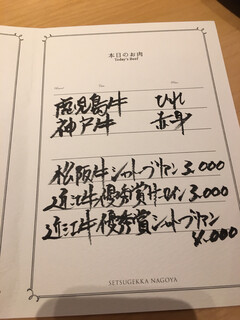 本日のお肉
Today's Beef
鹿児島牛 ひれ
神戸牛 赤身
松阪牛シャトーブリアン 3.000
近江牛優秀賞サーロイン 3.000
近江牛優秀賞シャトーブリアン
4.000
SETSUGEKKA NAGOYA